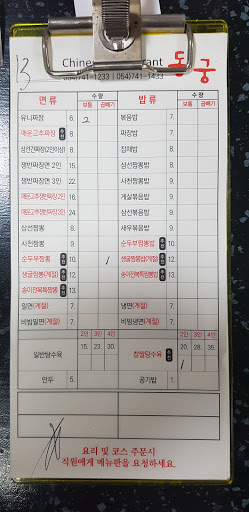 13
Chinese Restaurant 동궁
054)741-1233 | 054)741-1433
면 류 수 량 보통 곱빼기 밥 류 수 량 보통 곱빼기
유니짜장 6. 2 볶음밥 7.
매운고추짜장 추천 6. 짜장밥 7.
삼선간짜장(2인이상) 8. 잡채밥 8.
쟁반짜장면 2인 15. 삼선짬뽕밥 9.
쟁반짜장면 3인 22. 사천짬뽕밥 9.
매운고추쟁반짜장2인 16. 게살볶음밥 9.
매운고추쟁반짜장3인 24. 삼선볶음밥 9.
삼선짬뽕 8. 새우볶음밥 9.
사천짬뽕 9. 순두부짬뽕밥 추천 10.
순두부짬뽕 추천 10. 1 생굴짬뽕밥(계절) 추천 12.
생굴짬뽕(계절) 추천 12. 송이전복특짬뽕밥 추천 13.
송이전복특짬뽕 추천 13.
밀면(계절) 7. 냉면(계절) 7.
비빔밀면(계절) 7. 비빔냉면(계절) 7.
2인 3인 4인 2인 3인 4인
일반탕수육 15. 23. 30. 찹쌀탕수육 추천 20. 28. 35.
1
만두 5. 공기밥 1.
요리 및 코스 주문시
직원에게 메뉴판을 요청하세요.